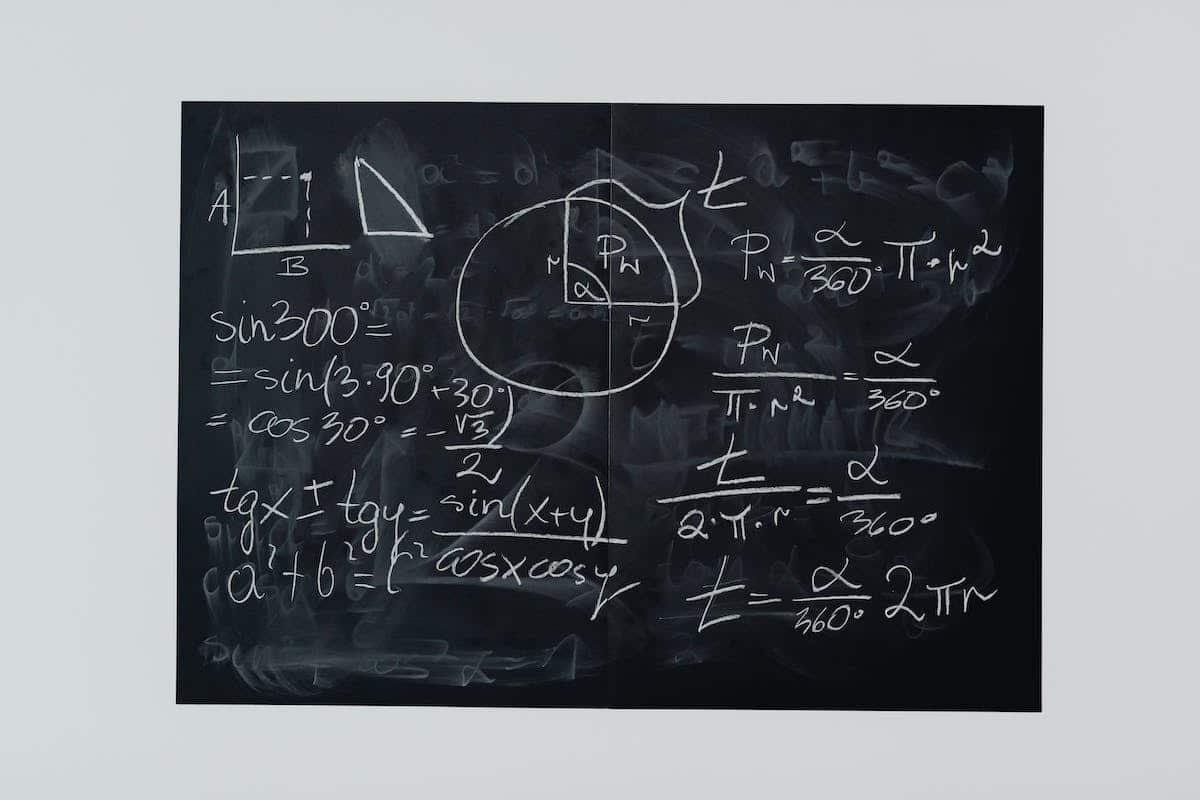 A
B
sin300°=
=sin(3·90°+30°)
= cos30° = -√3/2
tgx ± tgy = sin(x+y)/cosxcosy
a²+b²=c²
t
r
Pw
α
r
Pw = α/360° π·r²
Pw/π·r² = α/360°
t/2·π·r = α/360°
t = α/360° 2πr